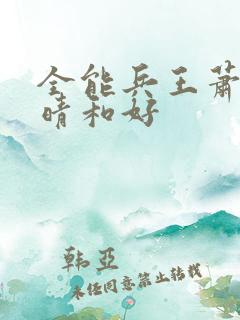 全能兵王萧
晴和好
韩亚
未经同意禁止转载